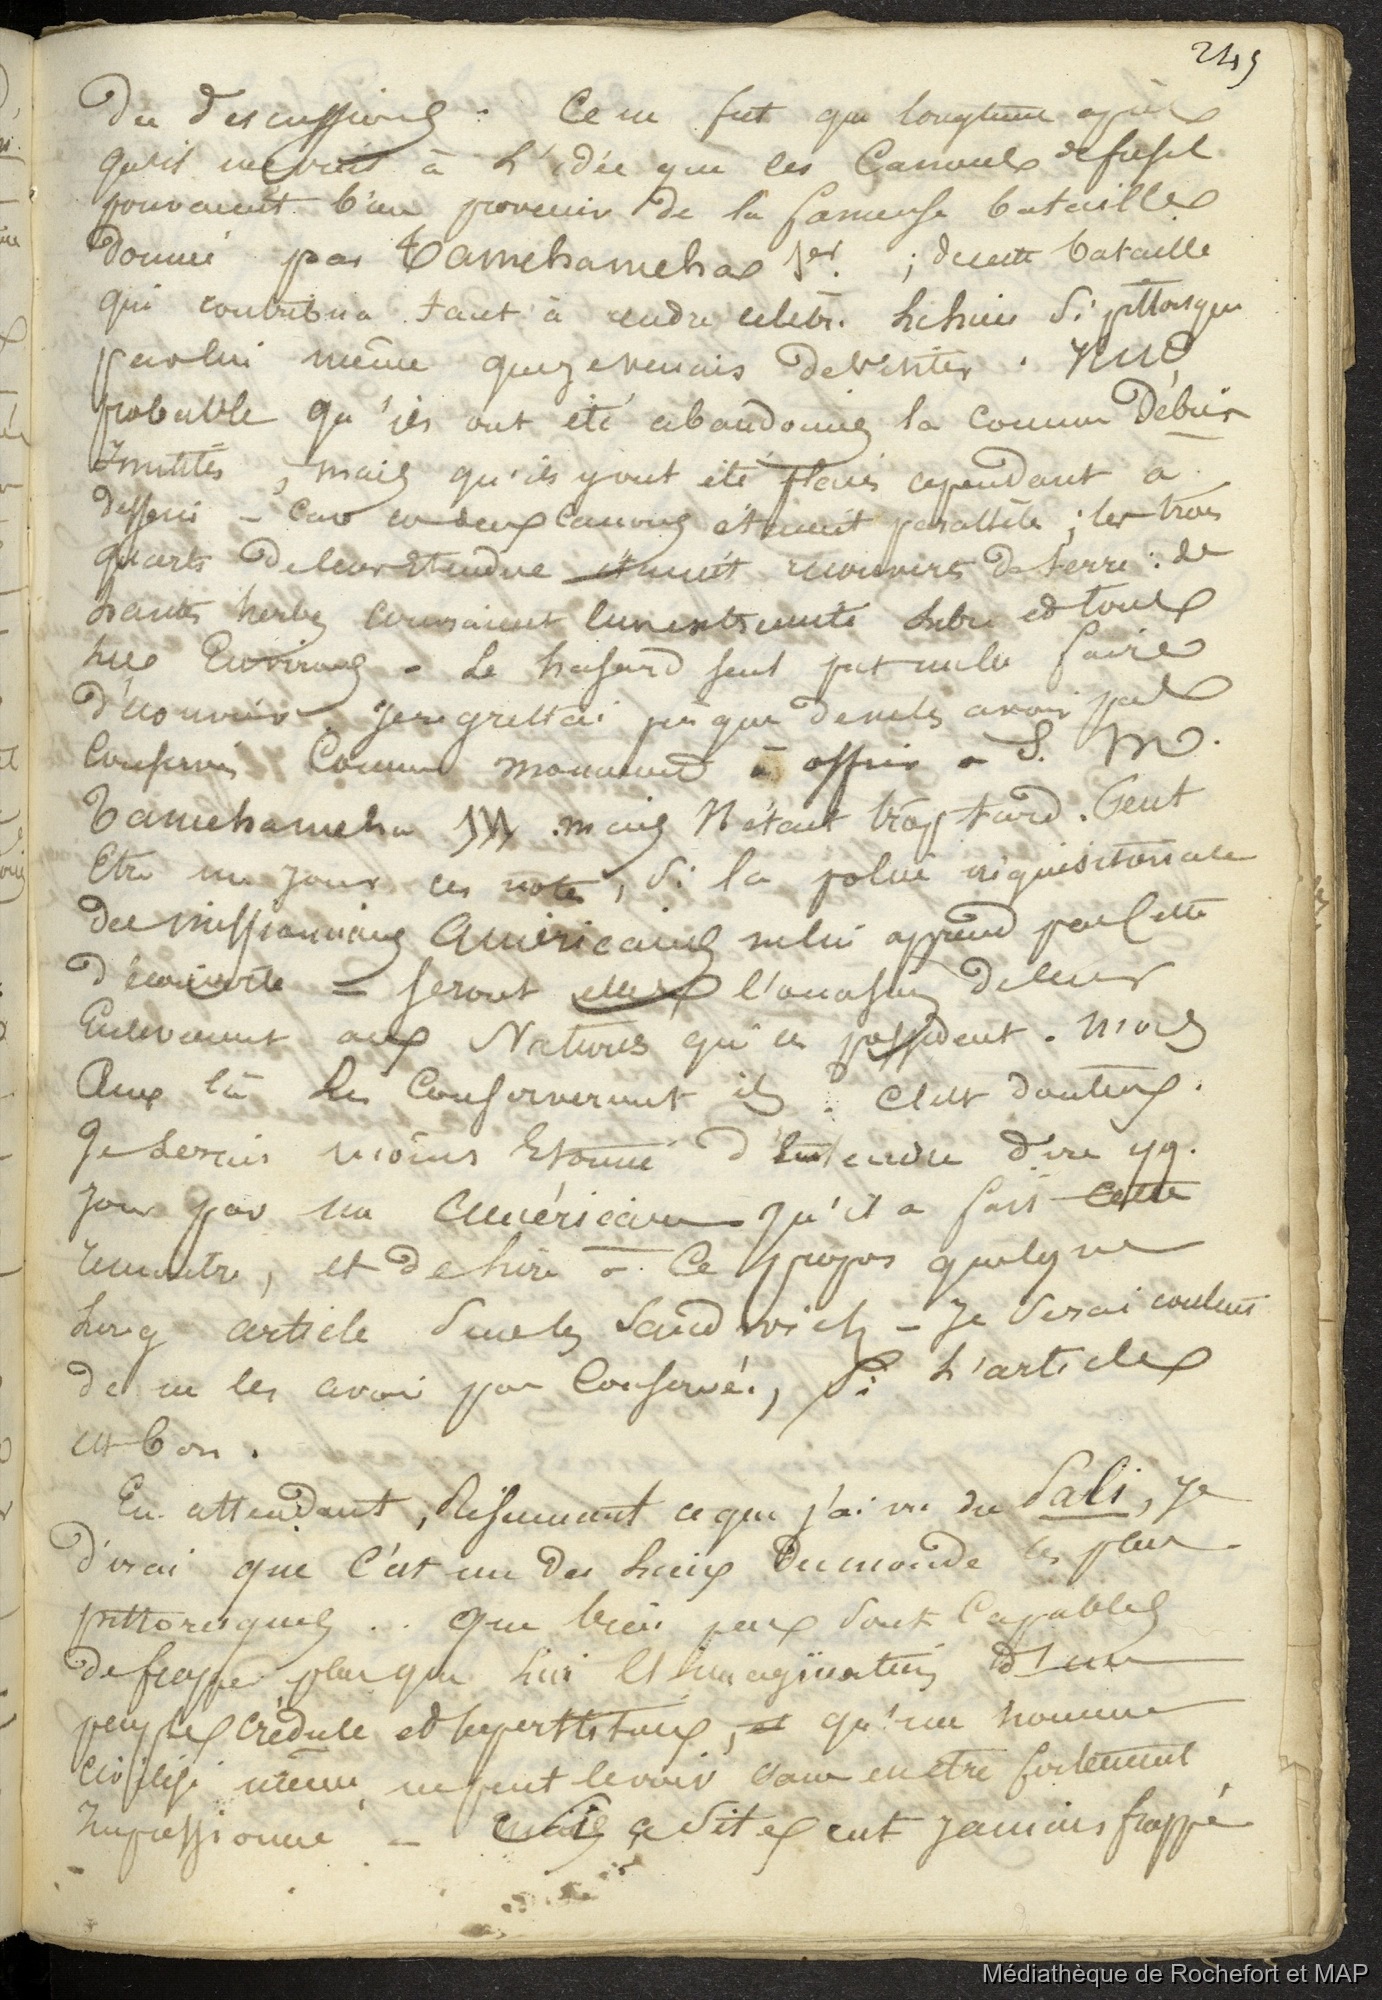 245
Des discussions. Ce ne fut que longtems après
qu'il me vint à l'idée que les Canons de fusil
pouvaient bien provenir de la fameuse bataille
donné par Tamehameha 1er. ; de cette bataille
qui contribua tant à rendre célèbre le lieu si pittoresque
par lui même que je venais de visiter. Il est
probable qu'ils ont été abandonnés là comme Débris
Inutiles, mais qu'ils y ont été placés cependant à
dessein - Car ces deux canons étaient parallèles ; les trois
quarts de leur étendue étaient recouverts de terre : de
hautes herbes couvraient leur extrémité libre et tous
les Environs. Le hasard seul put me les faire
découvrir. Je regrettai presque de ne les avoir pas
Conservés Comme monument à offrir à S. M.
Tamehameha III. mais Il était trop tard. Peut
Etre un jour ces notes, si la police inquisitoriale
des missionnaires Américains ne lui apprend pas cette
découverte = seront elles l'occasion de leur
Enlèvement aux Natures qui les possèdent. Mais
Ceux là les Conserveront ils ? C'est douteux.
Je serais moins Etonné d'Entendre dire qq.
jour par un Américain qu'il a fait cette
rencontre, et de lire à ce propos quelque
long article sur les Sandwich - Je serai content
de ne les avoir pas Conservés, si l'article
est bon.
En attendant, Résumant ce que j'ai vu du Pali, Je
dirai que C'est un des lieux Du monde les plus
pittoresques .. que bien peu sont Capables
de frapper plus que lui l'imagination d'un
peuple crédule et superstitieux, et qu'un homme
civilisé même, ne peut le voir sans en être fortement
Impressionné - Si a site eut jamais frappé
Médiathèque de Rochefort et MAP